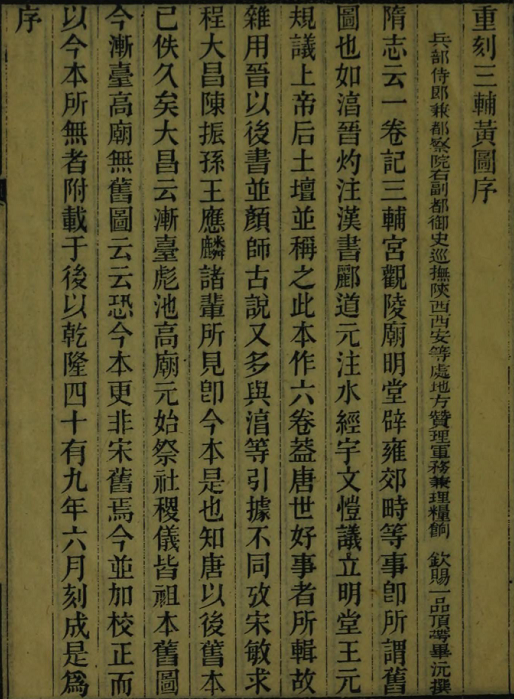 重刻三輔黃圖序
兵部侍郎兼都察院右副都御史巡撫陝西西安等處地方贊理軍務兼理糧餉　欽賜一品頂帶畢沅撰
隋志云一卷記三輔宮觀陵廟明堂辟雍郊畤等事卽所謂舊
圖也如湻晉灼注漢書酈道元注水經宇文愷議立明堂王元
規議上帝后土壇並稱之此本作六卷葢唐世好事者所輯故
雜用晉以後書並顏師古說又多與湻等引據不同攷宋敏求
程大昌陳振孫王應麟諸輩所見卽今本是也知唐以後舊本
已佚久矣大昌云漸臺彪池高廟元始祭社稷儀皆祖本舊圖
今漸臺高廟無舊圖云云恐今本更非宋舊焉今並加校正而
以今本所無者附載于後以乾隆四十有九年六月刻成是爲
序